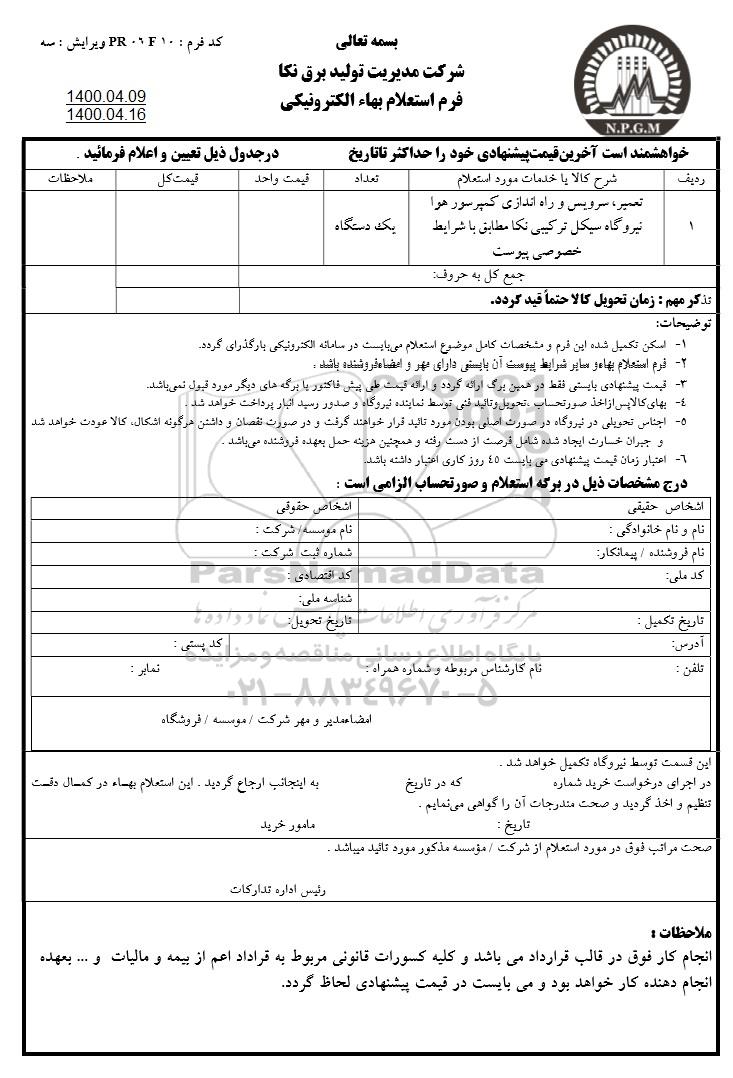 کد فرم : PR ٠٦ F ١٠ ویرایش : سه
بسمه تعالی
شرکت مدیریت تولید برق نکا
فرم استعلام بهاء الکترونیکی
1400.04.09
1400.04.16
N.P.G.M
خواهشمند است آخرین‌قیمت‌پیشنهادی خود را حداکثر تاتاریخ درجدول ذیل تعیین و اعلام فرمائید .
ردیف شرح کالا یا خدمات مورد استعلام تعداد قیمت واحد قیمت‌کل ملاحظات
١ تعمیر، سرویس و راه اندازی کمپرسور هوا
نیروگاه سیکل ترکیبی نکا مطابق با شرایط یک دستگاه
خصوصی پیوست
جمع کل به حروف:
تذکر مهم : زمان تحویل کالا حتماً قید گردد.
توضیحات:
١- اسکن تکمیل شده این فرم و مشخصات کامل موضوع استعلام می‌بایست در سامانه الکترونیکی بارگذرای گردد.
٢- فرم استعلام بهاءو سایر شرایط پیوست آن بایستی دارای مهر و امضاءفروشنده باشد .
٣- قیمت پیشنهادی بایستی فقط در همین برگ ارائه گردد و ارائه قیمت طی پیش فاکتور یا برگه های دیگر مورد قبول نمی‌باشد.
٤- بهای‌کالاپس‌ازاخذ صورتحساب ،تحویل‌وتائید فنی توسط نماینده نیروگاه و صدور رسید انبار پرداخت خواهد شد .
٥- اجناس تحویلی در نیروگاه در صورت اصلی بودن مورد تائید قرار خواهند گرفت و در صورت نقصان و داشتن هرگونه اشکال، کالا عودت خواهد شد
و جبران خسارت ایجاد شده شامل فرصت از دست رفته و همچنین هزینه حمل بعهده فروشنده می‌باشد .
٦- اعتبار زمان قیمت پیشنهادی می بایست ٤٥ روز کاری اعتبار داشته باشد.
درج مشخصات ذیل در برگه استعلام و صورتحساب الزامی است :
اشخاص حقیقی اشخاص حقوقی
نام و نام خانوادگی : نام موسسه/ شرکت :
نام فروشنده / پیمانکار: شماره ثبت شرکت :
کد ملی: کد اقتصادی :
شناسه ملی:
تاریخ تکمیل : تاریخ تحویل:
آدرس: کد پستی :
تلفن : نام کارشناس مربوطه و شماره همراه : نمابر :
امضاءمدیر و مهر شرکت / موسسه / فروشگاه
ParsNamadData
مرکز فرآوری اطلاعات پارس نماد داده ها
پایگاه اطلاع رسانی مناقصه و مزایده
۰۲۱-۸۸۳۴۹۶۷۰-۵
این قسمت توسط نیروگاه تکمیل خواهد شد .
در اجرای درخواست خرید شماره که در تاریخ به اینجانب ارجاع گردید . این استعلام بهاء در کمال دقت
تنظیم و اخذ گردید و صحت مندرجات آن را گواهی می‌نمایم .
تاریخ : مامور خرید
صحت مراتب فوق در مورد استعلام از شرکت / مؤسسه مذکور مورد تائید میباشد .
رئیس اداره تدارکات
ملاحظات :
انجام کار فوق در قالب قرارداد می باشد و کلیه کسورات قانونی مربوط به قراداد اعم از بیمه و مالیات و ... بعهده
انجام دهنده کار خواهد بود و می بایست در قیمت پیشنهادی لحاظ گردد.